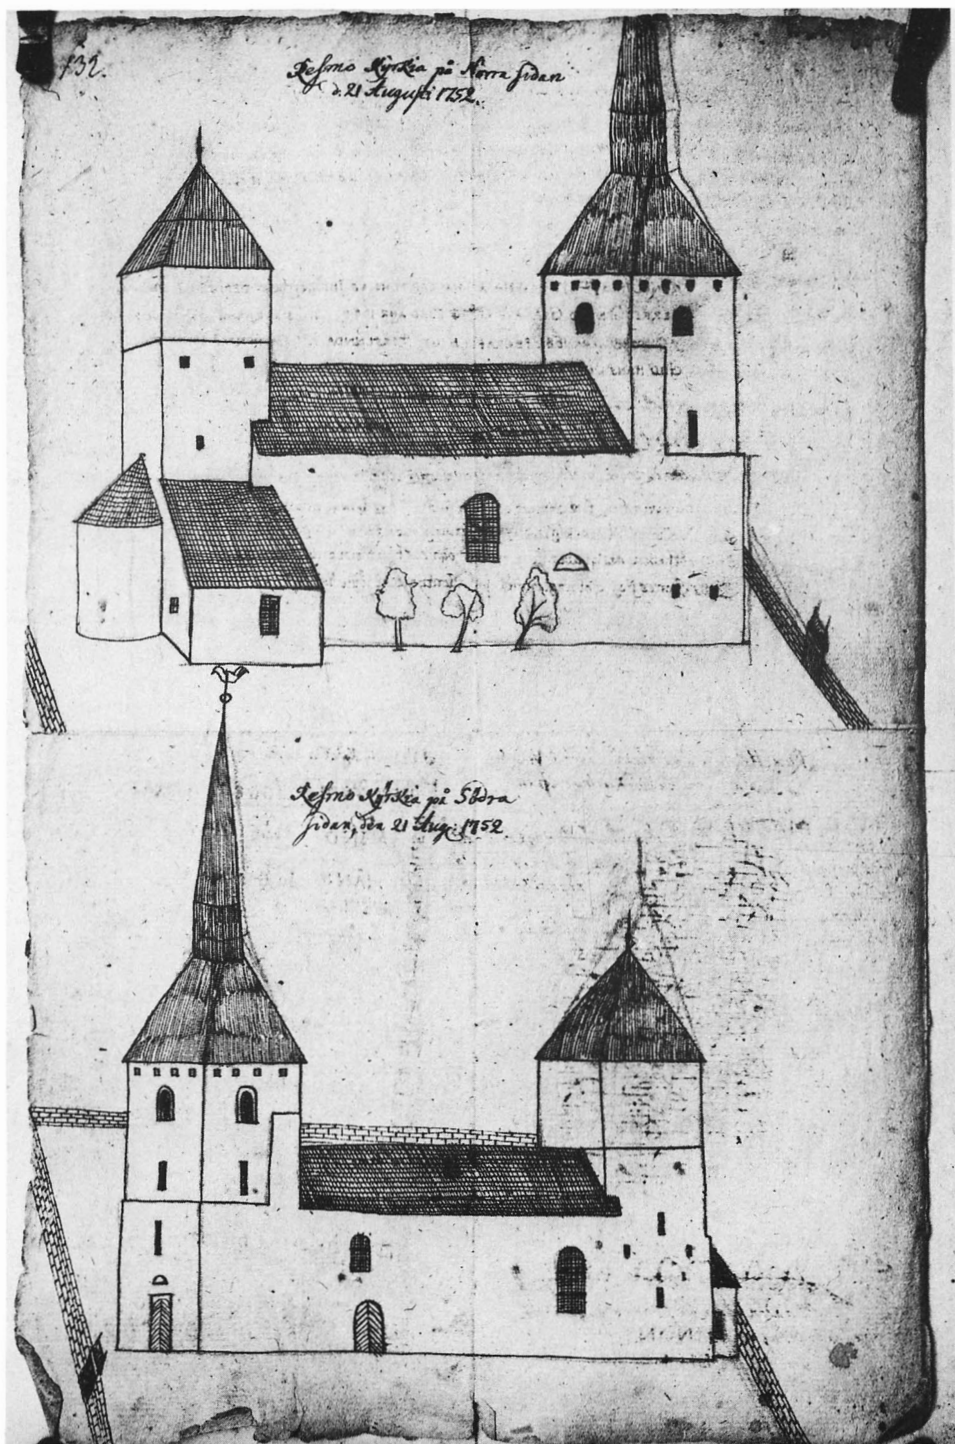 132.
Resmo Kyrkia på Norra sidan
d. 21 Augusti 1752.
Resmo Kyrkia på Södra
sidan, den 21 Aug: 1752